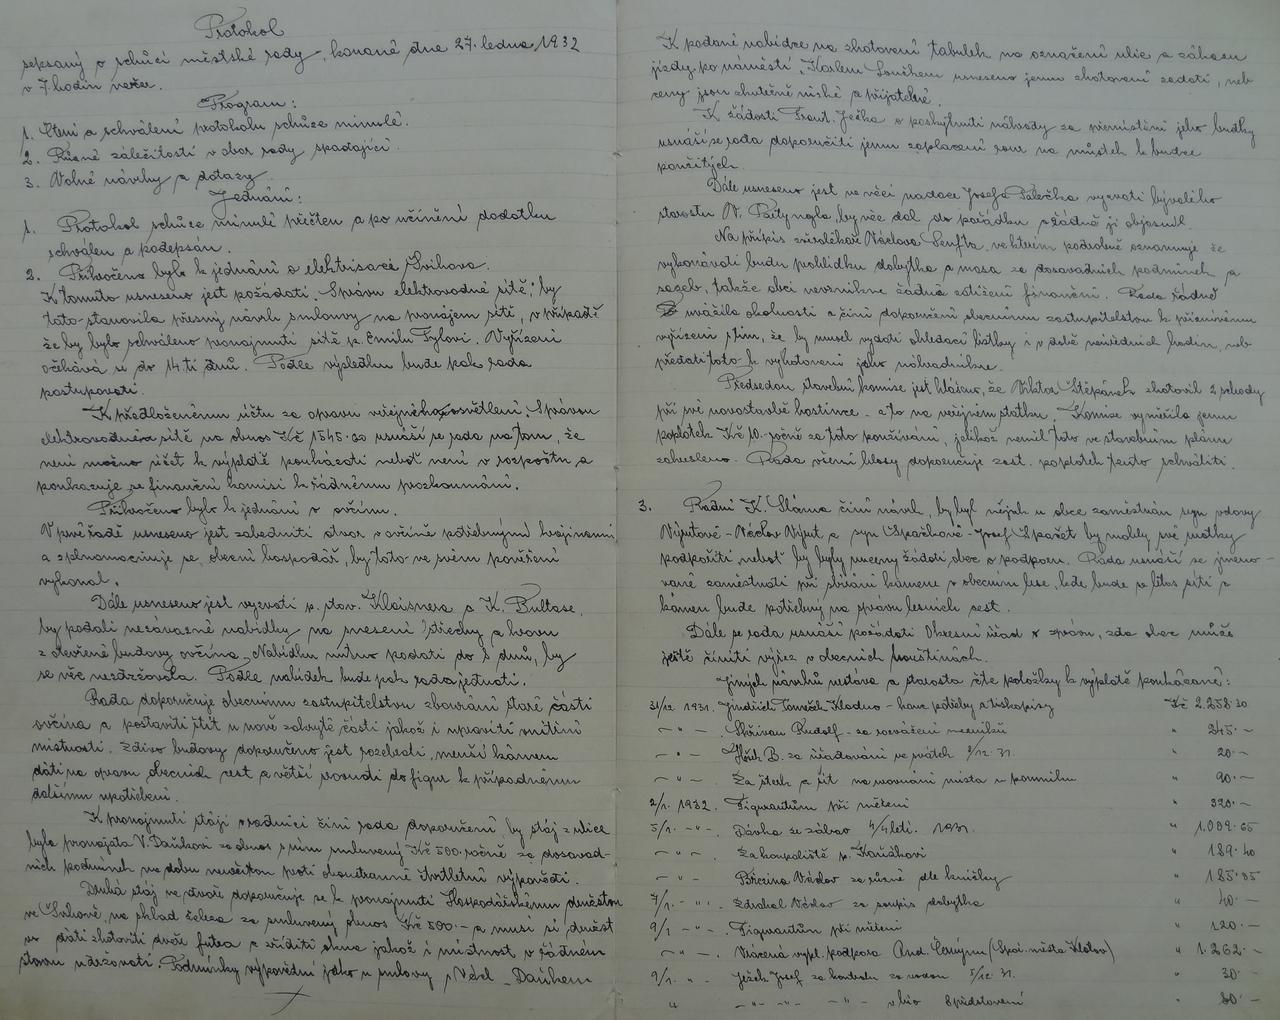 Protokol
sepsaný o schůzi městské rady, konané dne 27. ledna 1932
v 7 hodin večer.
Program:
1. Čtení a schválení protokolu schůze minulé.
2. Různé záležitosti v obor rady spadající.
3. Volné návrhy a dotazy.
Jednání:
1. Protokol schůze minulé přečten a po učinění dodatku
schválen a podepsán.
2. Přikročeno bylo k jednání o elektrisaci Švihova.
K tomuto usneseno jest požádati Správu elektrovodné sítě, by
tato stanovila přesný návrh smlouvy na pronájem sítě, v případě
že by bylo schváleno pronajmutí sítě p. Emilu Fylovi. Vyřízení
očekává se do 14ti dnů. Podle výsledku bude pak rada
postupovati.
K předloženému účtu za opravu veřejného osvětlení Správou
elektrovodné sítě na obnos Kč 1545.20 usnáší se rada na tom, že
není možno účet k výplatě poukázati neboť není v rozpočtu a
poukazuje se finanční komisi k řádnému prozkoumání.
Přikročeno bylo k jednání o ovčínu.
V prvé řadě usneseno jest zabedniti otvor v ovčíně potřebnými krajinami
a zplnomocňuje se obecní hospodář, by toto ve svém pověření
vykonal.
Dále usneseno jest vyzvati p. stav. Klaisnera a K. Bultase,
by podali nezávazné nabídky na snesení střechy a krovu
z otevřené budovy ovčína. Nabídku nutno podati do 8 dnů, by
se věc nezdržovala. Podle nabídek bude pak rada jednati.
Rada doporučuje obecnímu zastupitelstvu zbourání staré části
ovčína a postaviti štít u nově zakryté části jakož i upraviti vnitřní
místnosti. Zdivo budovy doporučeno jest rozebrati, menší kámen
dáti na opravu obecních cest a větší vorovnati do figur k případnému
dalšímu upotřebení.
K pronajmutí stájí v radnici činí rada doporučení, by stáj z ulice
byla pronajata V. Daňkovi za obnos s ním smluvený Kč 500 ročně za dosavad-
ních podmínek na dobu neurčitou proti oboustranné čtvrtletní výpovědi.
Druhá stáj ve dvoře doporučuje se k pronajmutí Hospodářskému družstvu
ve Švihově, na sklad železa za smluvený obnos Kč 500.- a musí si družst
vo dáti zhotoviti dveře futra a zříditi okna jakož i místnost v řádném
stavu udržovati. Podmínky výpovědní jako u smlouvy s Václ. Daňkem.
K podané nabídce na zhotovení tabulek na označení ulic a zákazu
jízdy po náměstí, Karlem Součkem usneseno jemu zhotovení zadati, neb
ceny jsou skutečně nízké a přijatelné.
K žádosti Frant. Ježka o poskytnutí náhrady za přemístění jeho budky
usnáší se rada doporučiti jemu zaplacení rour na můstek k budce
použitých.
Dále usneseno jest ve věci nadace Josefa Palečka vyzvati bývalého
starostu V. Pattyngla, by věc dal do pořádku a řádně ji objasnil.
Na přípis zvěrolékaře Václava Šenfta, ve kterém podrobně oznamuje že
vykonávati budu prohlídku dobytka a masa za dosavadních podmínek a
sazeb, takže obci nevznikne žádné zatížení finanční. Rada řádně
uvážila okolnosti a činí doporučení obecnímu zastupitelstvu k příznivému
vyřízení s tím, že by musel vydati ohledací lístky i v době neúředních hodin, neb
předati toto k vyhotovení jeho náhradníku.
Předsedou stavební komise jest hlášeno, že Viktor Štěpánek zhotovil 2 schody
při své novostavbě hostince - a to na veřejném statku. Komise vyměřila jemu
poplatek Kč 10.- ročně za toto používání, jelikož neměl toto ve stavebním plánu
zakresleno. Rada všemi hlasy doporučuje zast. poplatek tento schváliti.
3. Radní K. Sláma činí návrh, by byl nějak u obce zaměstnán syn vdovy
Výrutové - Václav Výrut a syn Špačkové - Josef Špaček by mohly své matky
podpořiti neboť by byly nuceny žádati obec o podporu. Rada usnáší se jmeno-
vané zaměstnati při sbírání kamene v obecním lese, kde bude se letos síti a
kámen bude potřebný na správu lesních cest.
Dále se rada usnáší požádati Okresní úřad o zprávu, zda obec může
ještě činiti výsez v obecních houštinách.
Jiných návrhů nestává a starosta čte položky k výplatě poukázané:
31/12 1931. Jindřich Tomášek Kladno - kanc. potřeby a tiskopisy Kč 2.258.30
- " - Skřivan Rudolf - za rozvážení " 245.-
- " - B. za úřadování ve svátek 8/12 31. " 20.-
- " - Za štěrk a šít na rovnání místa u pomníku " 90.-
2/1. 1932. Figurantům při měření " 320.-
5/1. - " - Dávka ze zábav 4/4 letí. 1931. " 1.099.65
- " - Za koupaliště p. " 189.40
- " - Březina Václav za různé dle knížky " 185.85
7/1. - " - Zdrahal Václav za soupis dobytka " 40.-
9/1. - " - Figurantům při měření " 120.-
- " - Vrácená vypl. podpora And. Černým (Spoř. města Klatov) " 1.262.-
9/1. - " - Ježek Josef za kontrolu za vodou 5/12 31. " 30.-
" - " - - " - - " - v bio 8 představení " 80.-